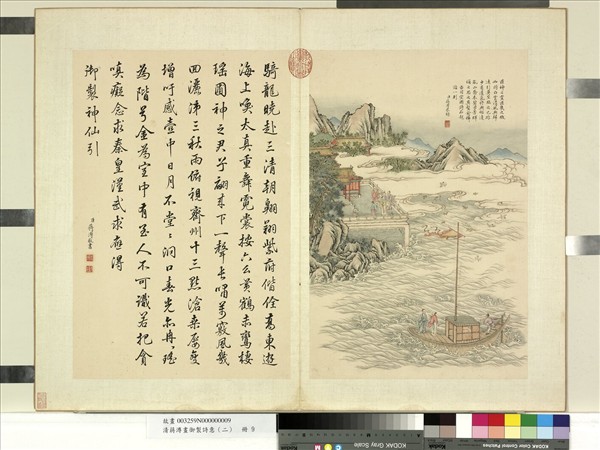 騎龍曉赴三清朝翱翔紫府偕佺高東遊
海上喚太真重舞霓裳按六么黃鶴赤鸞棲
瑤圃神之君兮翩來下一聲長嘯萬竅風幾
回灑沛三秋雨俯視齊州十三點滄桑屢變
增吁感壺中日月不堂堂洞口春光亦冉冉瑤
為階兮金為室中有至人不可識若把貪
嗔癡念求秦皇漢武求應得
御製神仙引
臣蔣溥敬書
故畫 003259N000000009
清蔣溥畫御製詩意(二) 冊 9
KODAK Gray Scale
KODAK Color Control Patches